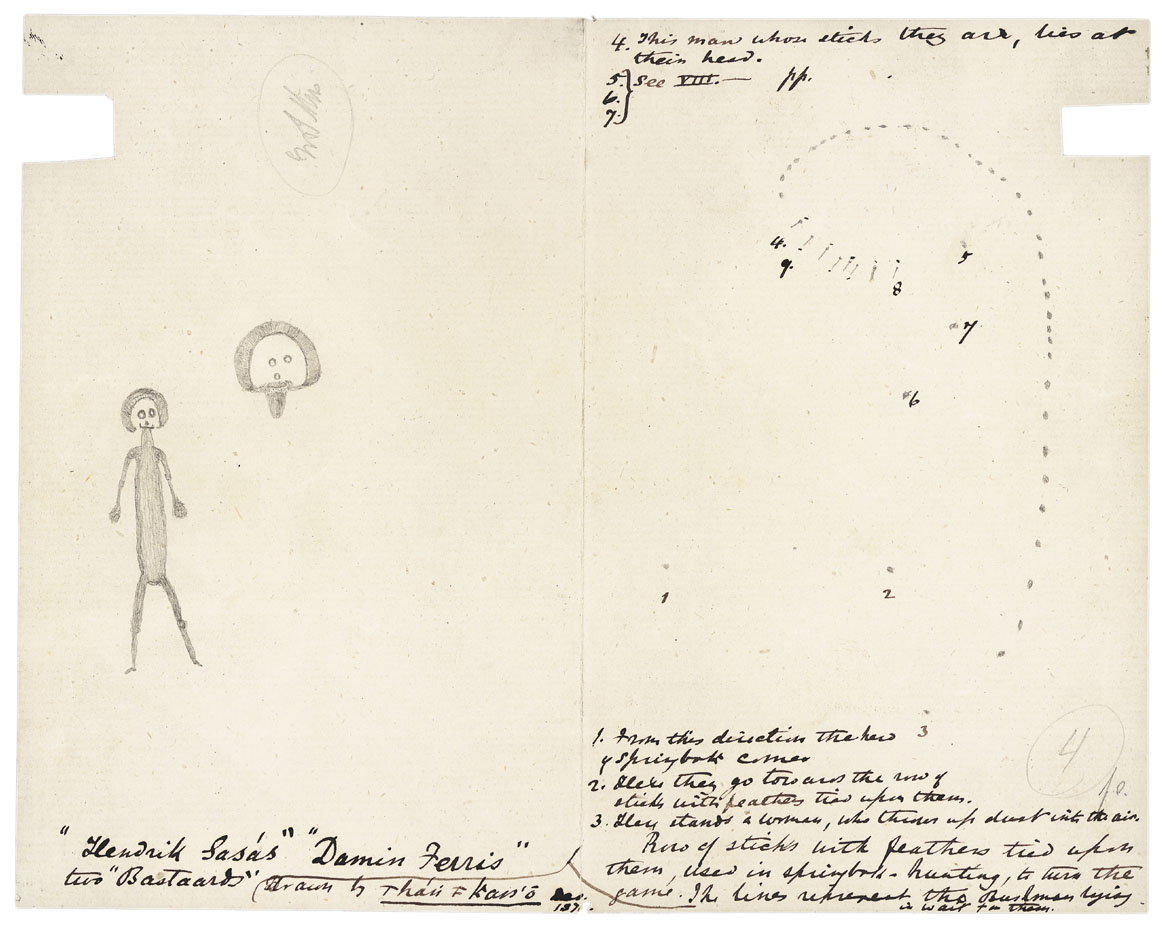 "Hendrik Sasás" "Damin Ferris"
two "Bastaards"
(Drawn by
4. This man whose sticks they are, lies at
their head.
5. } See VIII.— pp.
6.
7.
4.
9.
8
5
7
6
1
2
3
1. From this direction the herd
of Springbok comes
2. Here they go towards the row of
sticks with feathers tied upon them.
3. Here stands a woman, who throws up dust into the air.
Row of sticks with feathers tied upon
them, used in springbok-hunting, to turn the
game. The lines represent the Bushmen lying
in wait for them.
4